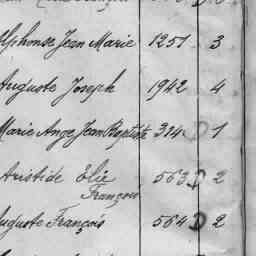 Alphonse Jean Marie 1251 3
Auguste Joseph 1942 4
Marie Ange Jean Baptiste 334 D 1
Aristide Elie 563 D 2
François
Auguste François 564 D 2